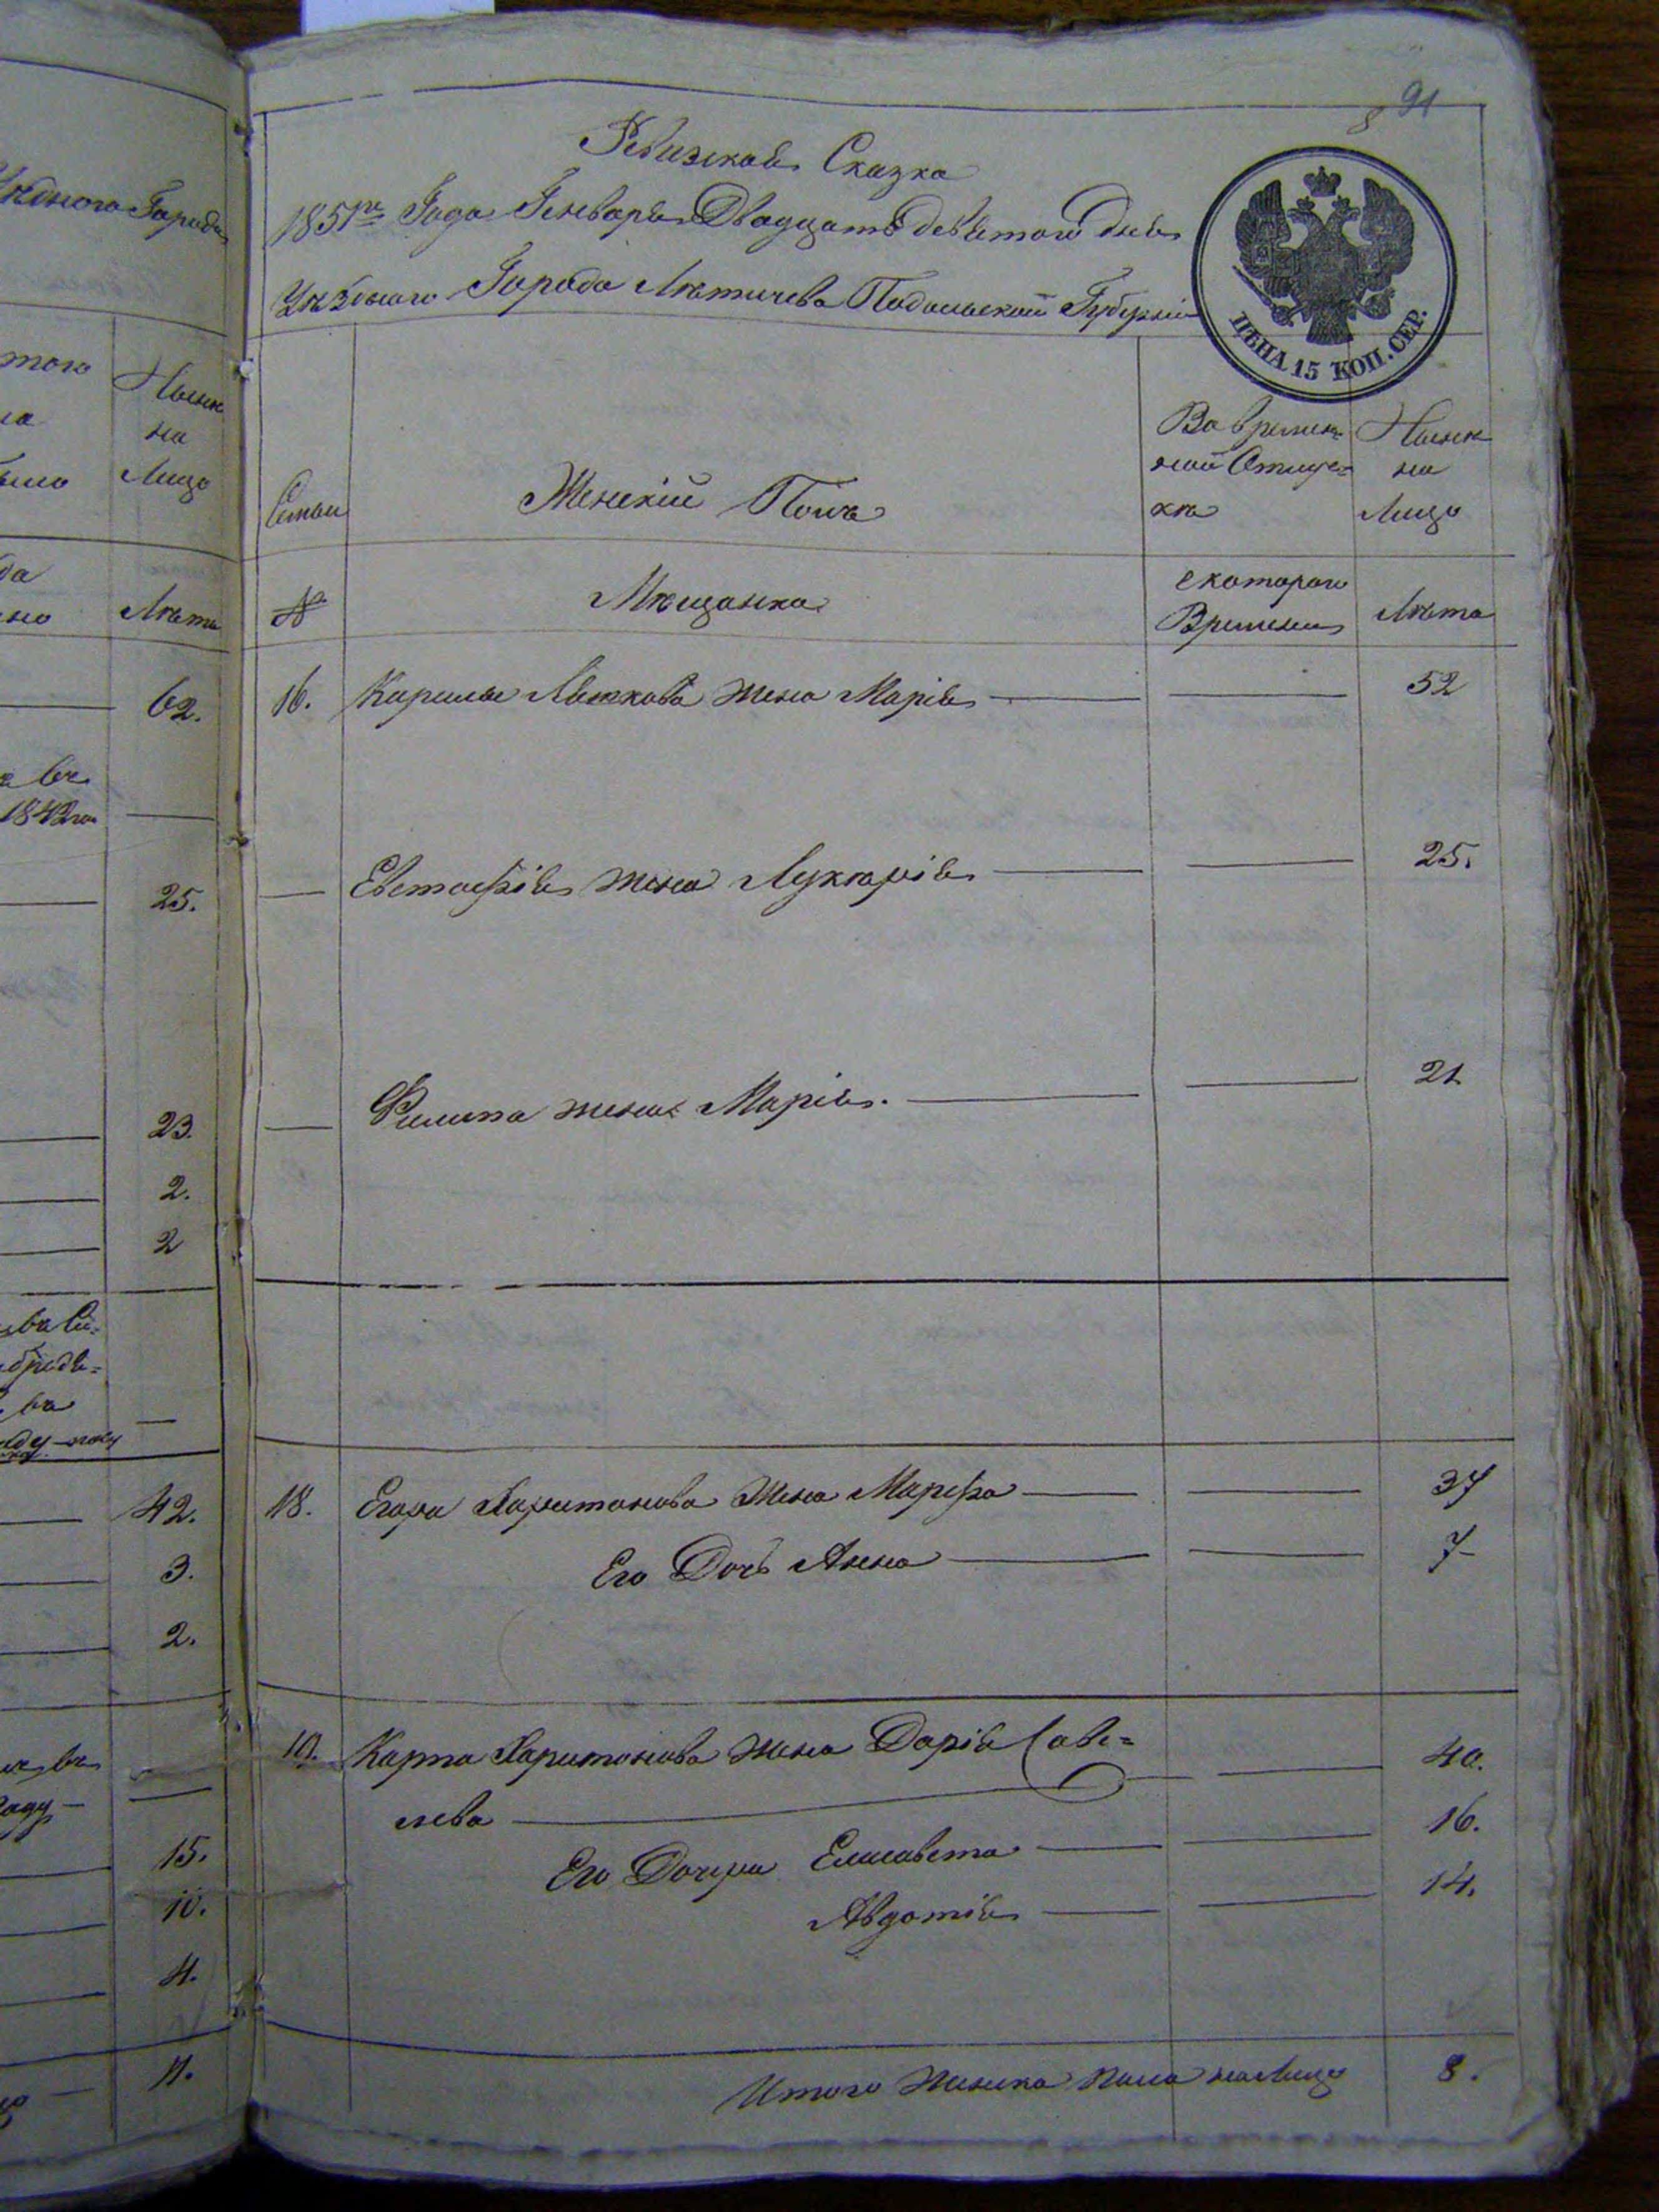 91
Ревизкая Сказка
1851го Года Генваря Двадцать девятого дня
Уѣздного Города Лѣтичева Подольской Губерніи
ЦѢНА 15 КОП. СЕР.
Семьи
Женскій Полъ
Во времен=
ной Отлуч=
кѣ
Нынѣ
на
Лицо
№
Мѣщанка
с которого
Времени
Лѣта
16. Кирилы жена Марія 52
Евстафія жена Лукерія 25.
Филипа жена Марія. 21
18. Егора Харитонова Жена Марфа 37
Его Дочь Анна 7
19. Карпа Харитонова жена Дарія Саве=
льева 40.
Его Дочери Елисавета 16.
Авдотія 14.
Итого женска пола на Лицо 8.
Города
Нынѣ
на
Лицо
Лѣта
62.
1842го
25.
23.
2.
2
42.
3.
2.
15.
10.
4.
11.